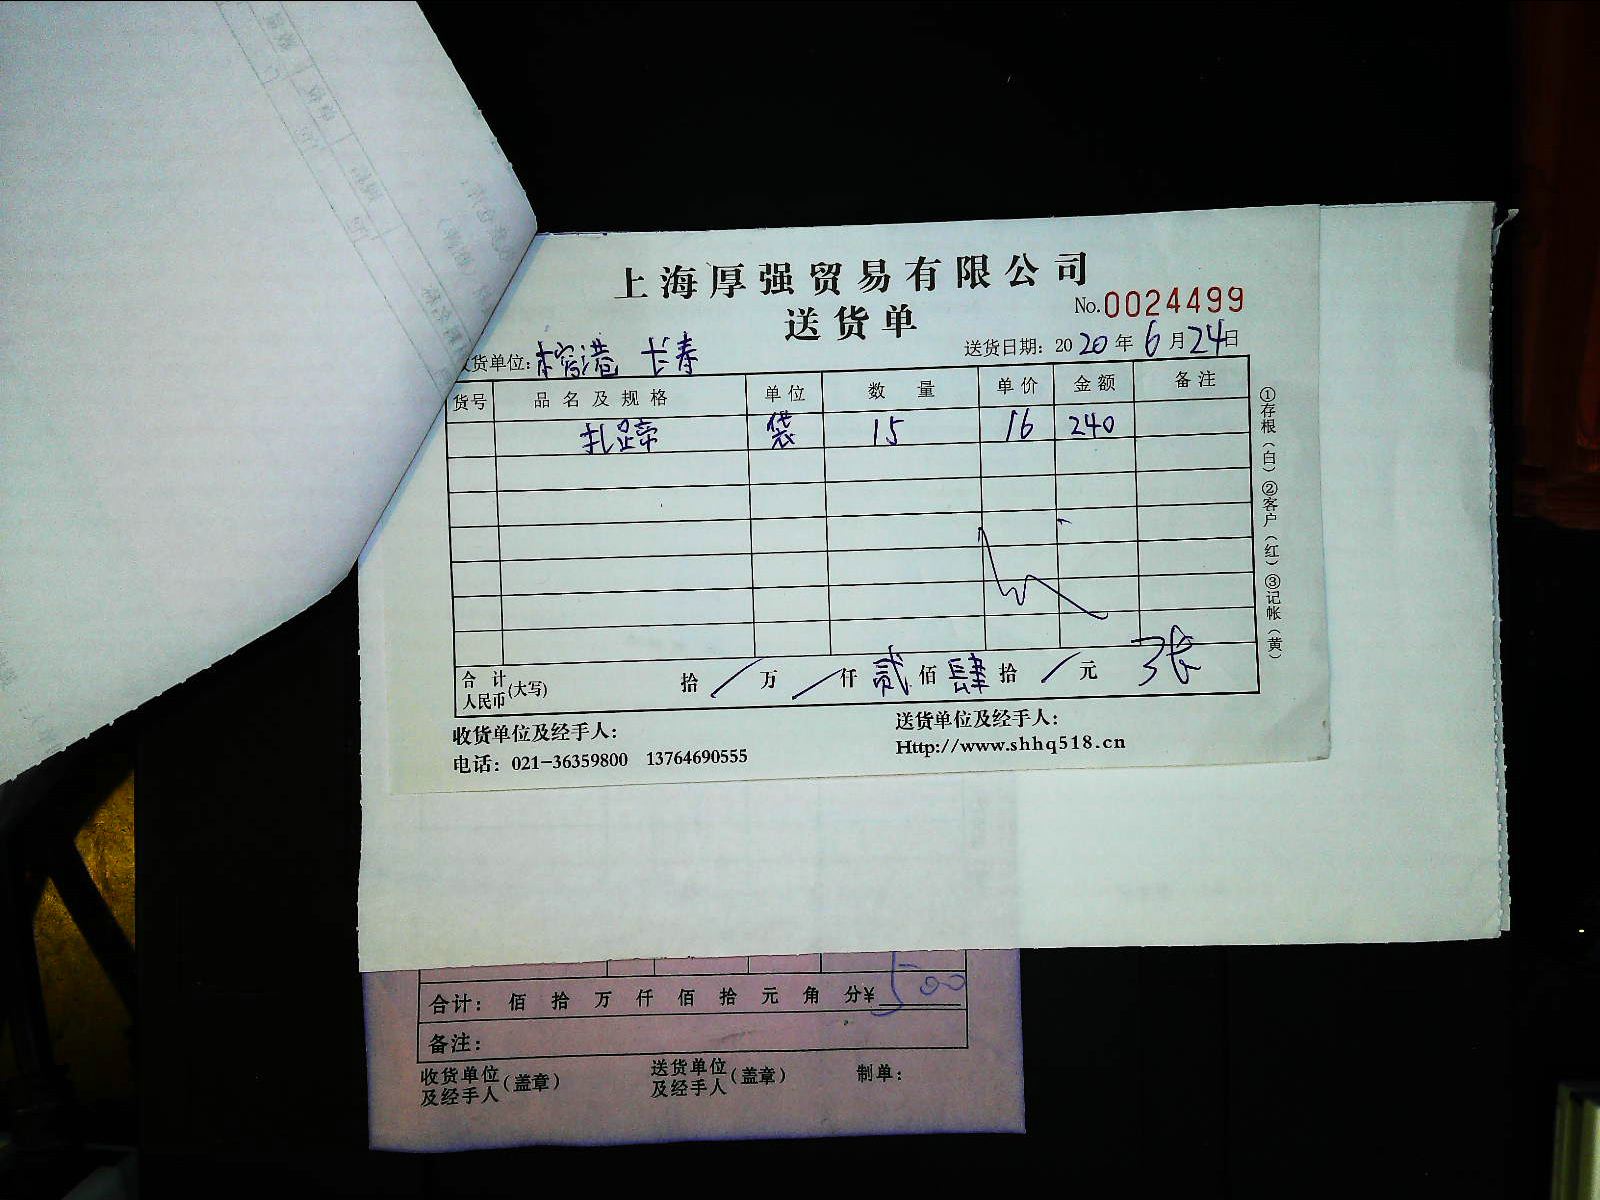 上海厚强贸易有限公司
送货单
No.0024499
货单位: 港 长寿
送货日期: 2020年6月24日
货号 品名及规格 单位 数量 单价 金额 备注
扎蹄 袋 15 16 240
合计人民币(大写) 拾/万/仟贰佰肆拾/元 张
收货单位及经手人:
送货单位及经手人:
电话: 021-36359800 13764690555
Http://www.shhq518.cn
①存根(白)②客户(红)③记帐(黄)
合计: 佰 拾 万 仟 佰 拾 元 角 分¥500
备注:
收货单位及经手人(盖章) 送货单位及经手人(盖章) 制单: